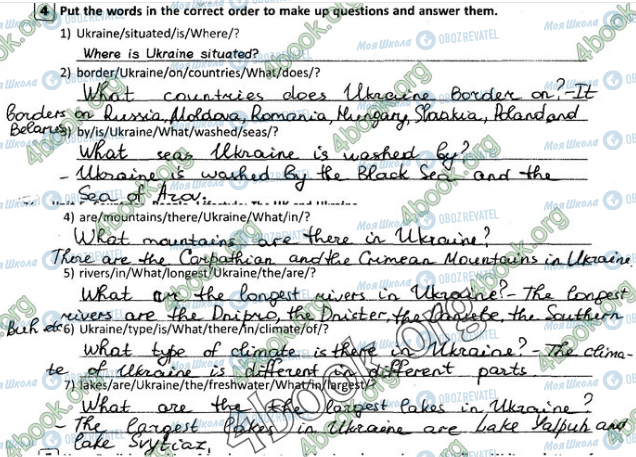 4 Put the words in the correct order to make up questions and answer them.
1) Ukraine/situated/is/Where/?
Where is Ukraine situated?
2) border/Ukraine/on/countries/What/does/?
What countries does Ukraine border on? - It
borders on Russia, Moldova, Romania, Hungary, Slovakia, Poland and
Belarus
3) by/is/Ukraine/What/washed/seas/?
What seas Ukraine is washed by?
- Ukraine is washed by the Black Sea and the
Sea of Azov.
4) are/mountains/there/Ukraine/What/in/?
What mountains are there in Ukraine?
There are the Carpathian and the Crimean Mountains in Ukraine
5) rivers/in/What/longest/Ukraine/the/are/?
What are the longest rivers in Ukraine? - The longest
rivers are the Dnipro, the Dnister, the Danube, the Southern
Buh etc
6) Ukraine/type/is/What/there/in/climate/of/?
What type of climate is there in Ukraine? - The clima-
te of Ukraine is different in different parts
7) lakes/are/Ukraine/the/freshwater/What/in/largest/?
What are the the largest lakes in Ukraine?
- The largest lakes in Ukraine are Lake Yalpuh and
lake Svytiaz.